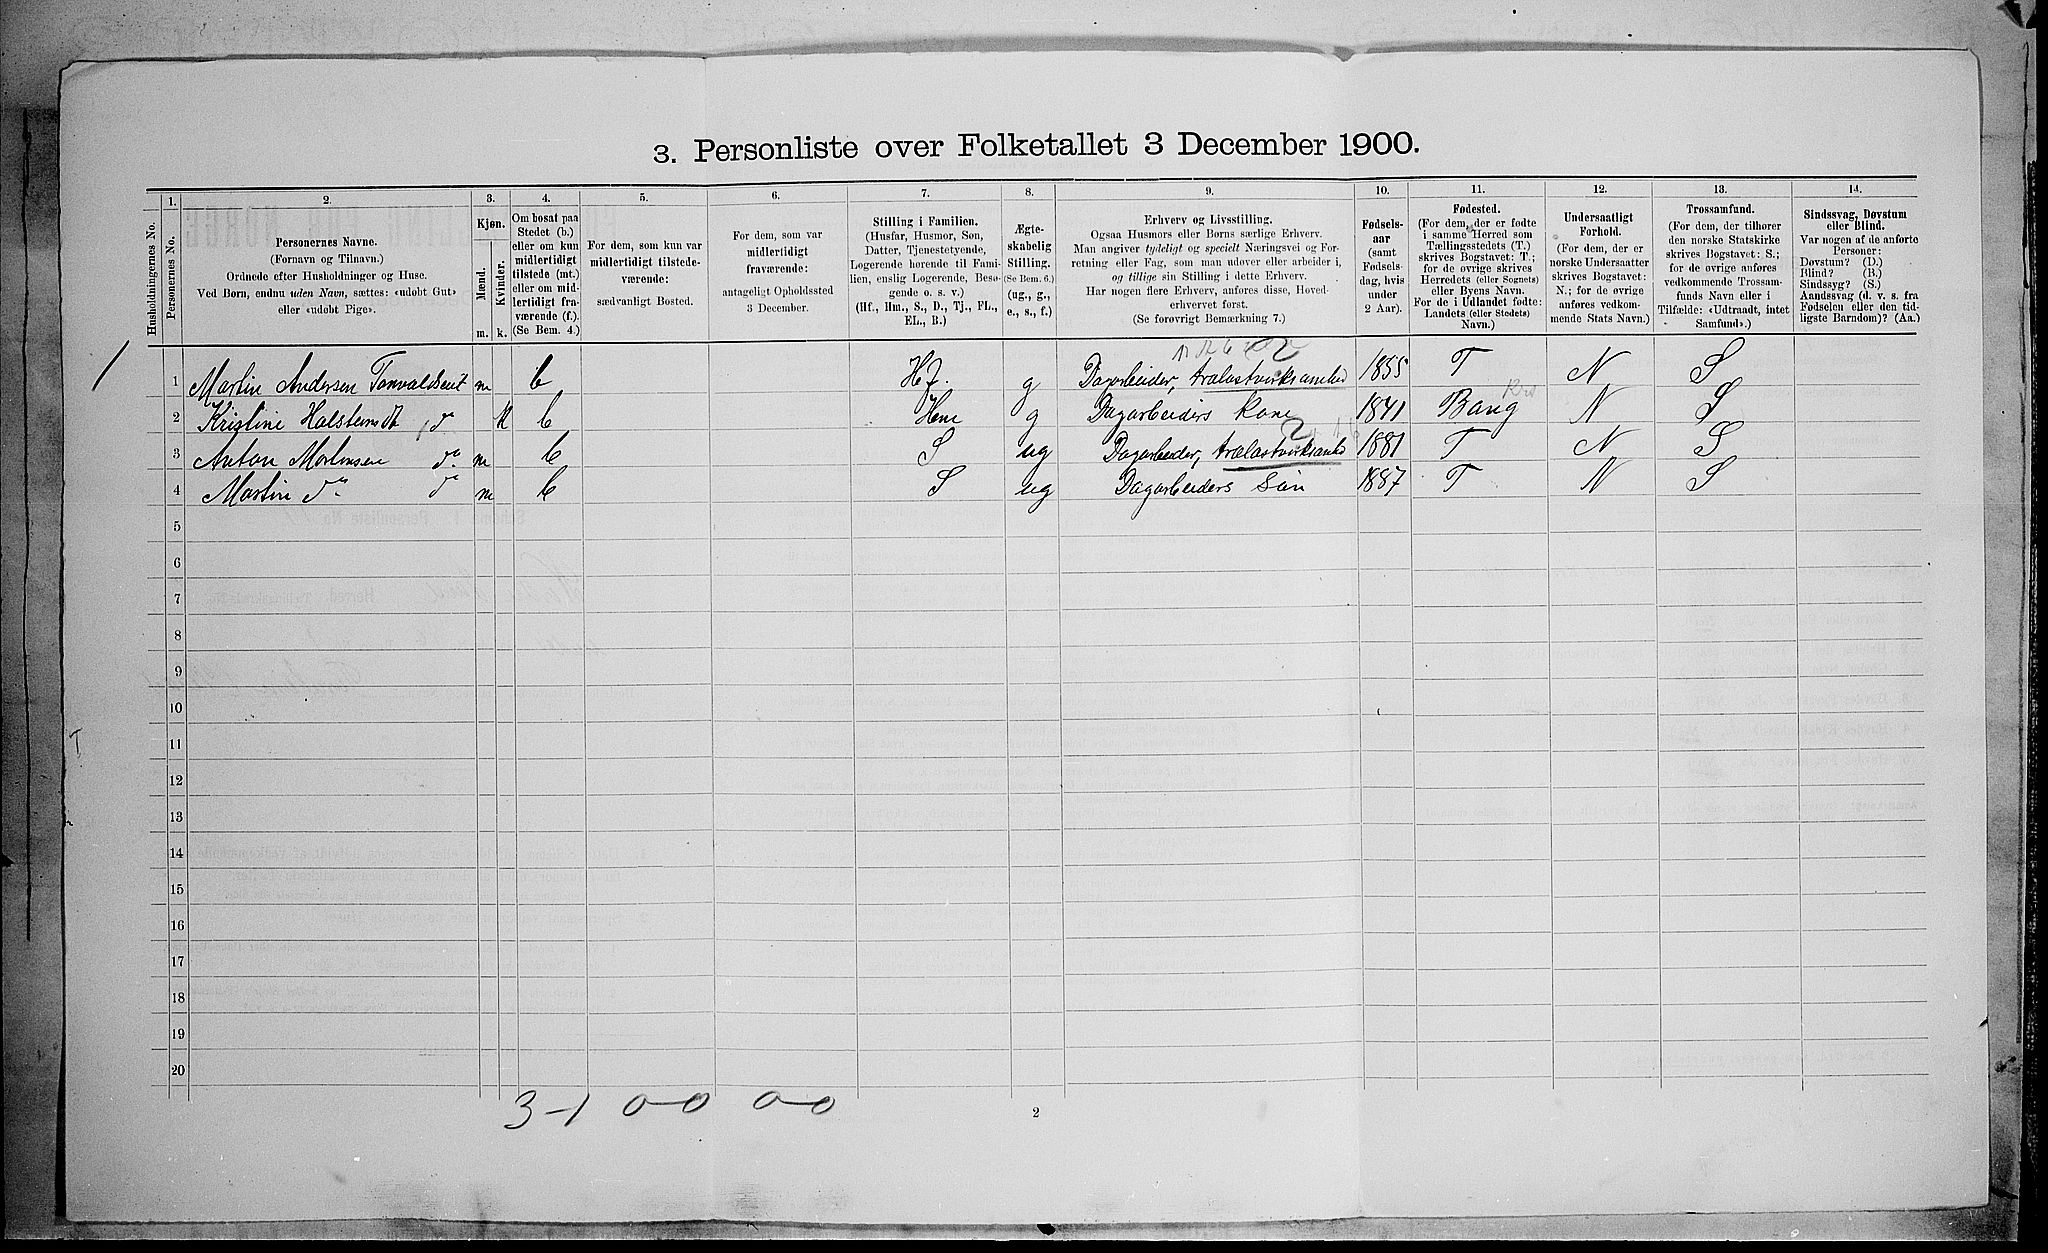 3. Personliste over Folketallet 3 December 1900.
Husholdningernes No.
1.
Personernes No.
2.
Personernes Navne.
(Fornavn og Tilnavn.)
Ordnede efter Husholdninger og Huse.
Ved Børn, endnu uden Navn, sættes: «udøbt Gut»
eller «udøbt Pige».
3.
Kjøn.
Mænd.
Kvinder.
m. k.
4.
Om bosat paa
Stedet (b.)
eller om kun
midlertidigt
tilstede (mt.)
eller om mid-
lertidigt fra-
værende (f.).
(Se Bem. 4.)
5.
For dem, som kun var
midlertidigt tilstede-
værende:
sædvanligt Bosted.
6.
For dem, som var
midlertidigt
fraværende:
antageligt Opholdssted
3 December.
7.
Stilling i Familien.
(Husfar, Husmor, Søn,
Datter, Tjenestetyende,
Logerende hørende til Fami-
lien, enslig Logerende, Besø-
gende o. s. v.)
(Hf., Hm., S., D., Tj., FL.,
EL., B.)
8.
Ægte-
skabelig
Stilling.
(Se Bem. 6.)
(ug., g.,
e., s., f.)
9.
Erhverv og Livsstilling.
Ogsaa Husmors eller Børns særlige Erhverv.
Man angiver tydeligt og specielt Næringsvei og For-
retning eller Fag, som man udøver eller arbeider i,
og tillige sin Stilling i dette Erhverv.
Har nogen flere Erhverv, anføres disse, Hoved-
erhvervet først.
(Se forøvrigt Bemærkning 7.)
10.
Fødsels-
aar
(samt
Fødsels-
dag, hvis
under
2 Aar).
11.
Fødested.
(For dem, der er fødte
i samme Herred som
Tællingsstedets (T.)
skrives Bogstavet: T.;
for de øvrige skrives
Herredets (eller Sognets)
eller Byens Navn.
For de i Udlandet fødte:
Landets (eller Stedets)
Navn.)
12.
Undersaatligt
Forhold.
(For dem, der er
norske Undersaatter
skrives Bogstavet:
N.; for de øvrige
anføres vedkom-
mende Stats Navn.)
13.
Trossamfund.
(For dem, der tilhører
den norske Statskirke
skrives Bogstavet: S.;
for de øvrige anføres
vedkommende Trossam-
funds Navn eller i
Tilfælde: «Udtraadt, intet
Samfund».)
14.
Sindssvag, Døvstum
eller Blind.
Var nogen af de anførte
Personer:
Døvstum? (D.)
Blind? (B.)
Sindssyg? (S.)
Aandssvag (d. v. s. fra
Fødselen eller den tid-
ligste Barndom)? (Aa.)
1 1 Martin Andersen m b Hf. g Dagarbeider, trælastvirksamhed 1855 T N S
2 Kristine k b Hm g Dagarbeiders kone 1841 N S
3 Anton Martinsen do. m b S ug Dagarbeider, trælastvirksamhed 1881 T N S
4 Martin do. do m b S ug Dagarbeiders Søn 1887 T N S
5
6
7
8
9
10
11
12
13
14
15
16
17
18
19
20
3-1 0-0 0-0
2